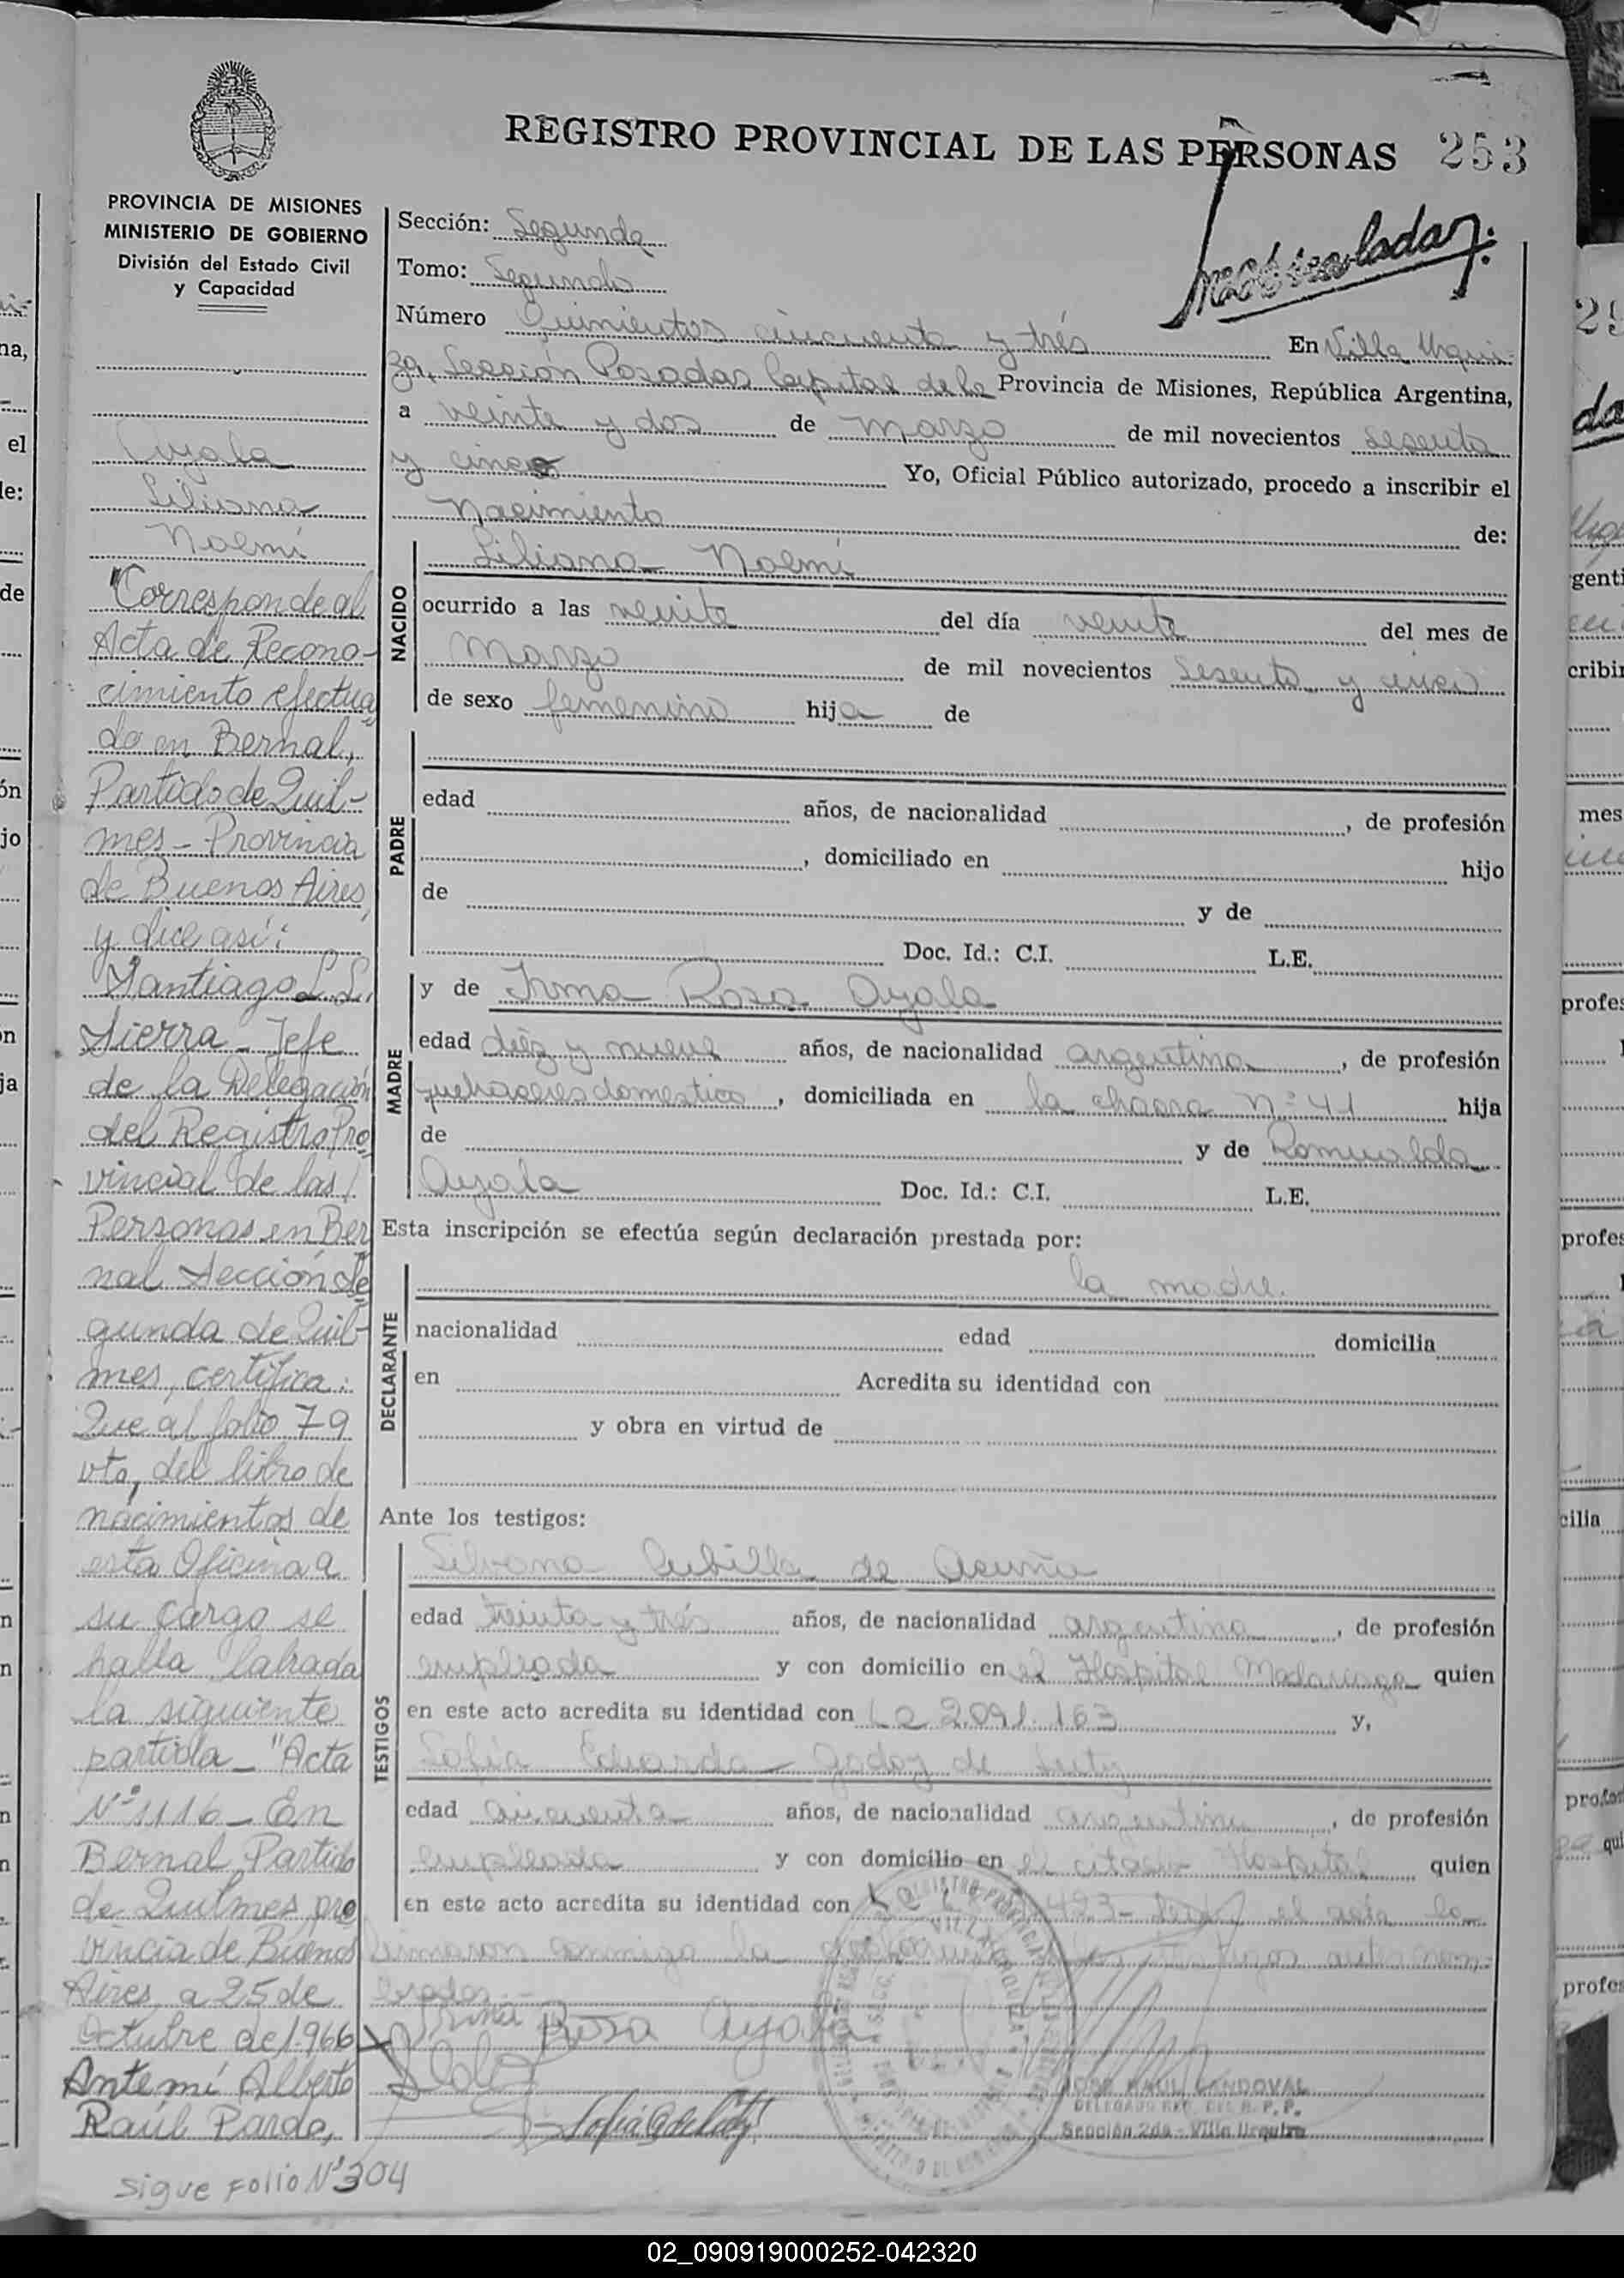 REGISTRO PROVINCIAL DE LAS PERSONAS 253
PROVINCIA DE MISIONES
MINISTERIO DE GOBIERNO
División del Estado Civil
y Capacidad
Matriculada
Sección: Segunda
Tomo: Segundo
Número Quinientos cincuenta y trés En Villa Urqui-
za, Sección Posadas Capital de la Provincia de Misiones, República Argentina,
a veinte y dos de Marzo de mil novecientos sesenta
y cinco Yo, Oficial Público autorizado, procedo a inscribir el
Nacimiento de:
NACIDO
Liliana Noemí
ocurrido a las veinte del día veinte del mes de
Marzo de mil novecientos Sesenta y cinco
de sexo femenino hija de
PADRE
edad años, de nacionalidad , de profesión
, domiciliado en hijo
de y de
Doc. Id.: C.I. L.E.
MADRE
y de Irma Rosa Ayala
edad diéz y nueve años, de nacionalidad argentina, de profesión
quehaceres domestico, domiciliada en la chacra N° 41 hija
de y de Romualda
Ayala Doc. Id.: C.I. L.E.
Esta inscripción se efectúa según declaración prestada por:
DECLARANTE
la madre.
nacionalidad edad domicilia
en Acredita su identidad con
y obra en virtud de
Ante los testigos:
TESTIGOS
Silvana Cubilla de Acuña
edad treinta y trés años, de nacionalidad argentina, de profesión
empleada y con domicilio en el Hospital Madariaga quien
en este acto acredita su identidad con L C 2.091.163 y,
Sofía Eduarda Godoy de
edad cincuenta años, de nacionalidad argentina, de profesión
empleada y con domicilio en el citado Hospital quien
en este acto acredita su identidad con L C 423- el acta la
firmaron conmigo la testigos antes nom-
brados.-
Irma Rosa Ayala
JOSE RAUL SANDOVAL
DELEGADO REG. DEL R. P. P.
Sección 2da - Villa Urquiza
Ayala
Liliana
Noemí
"Corresponde al
Acta de Recono-
cimiento efectua
do en Bernal,
Partido de Quil-
mes - Provincia
de Buenos Aires,
y dice así:
Santiago L. L.
Sierra - Jefe
de la Delegación
del Registro Pro
vincial de las
Personas en Ber
nal Sección Se
gunda de Quil-
mes, certifica:
Que al folio 79
vto, del libro de
nacimientos de
esta Oficina a
su cargo se
halla labrada
la siguiente
partida - "Acta
N° 1116 - En
Bernal, Partido
de Quilmes pro
vincia de Buenos
Aires, a 25 de
Octubre de 1.966
Ante mí Alberto
Raúl Pardo,
sigue Folio N° 304
02_090919000252-042320